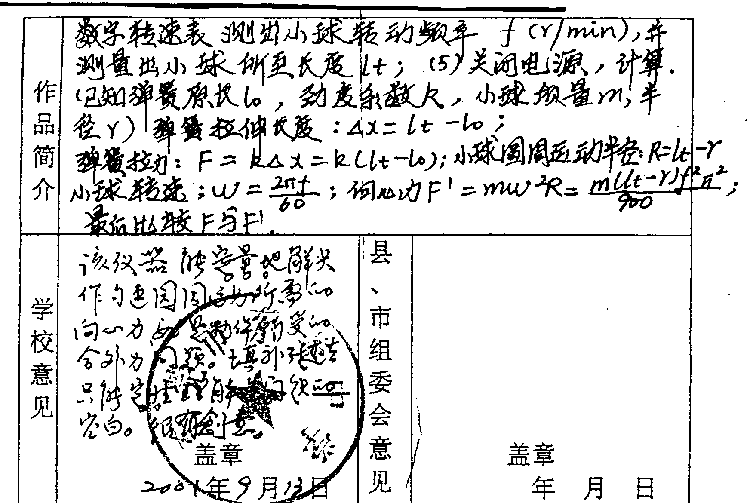 作品简介
数字转速表测出小球转动频率 f (r/min), 并
测量出小球所至长度 lt; (5) 关闭电源, 计算.
(已知弹簧原长 l₀, 劲度系数 k, 小球质量 m, 半
径 r) 弹簧拉伸长度: Δx = lt - l₀;
弹簧拉力: F = kΔx = k(lt-l₀); 小球圆周运动半径: R = lt - r
小球转速: ω = 2πf/60; 向心力 F' = mω²R = m(lt-r)f²π²/900;
最后比较 F 与 F'.
学校意见
该仪器能
作匀速圆周运动所需的
向心力
合外力问题。填补
只能定性
空白。
盖章
2001年9月13日
县、市组委会意见
盖章
年 月 日